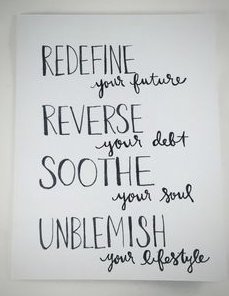 REDEFINE
your future
REVERSE
your debt
SOOTHE
your soul
UNBLEMISH
your lifestyle